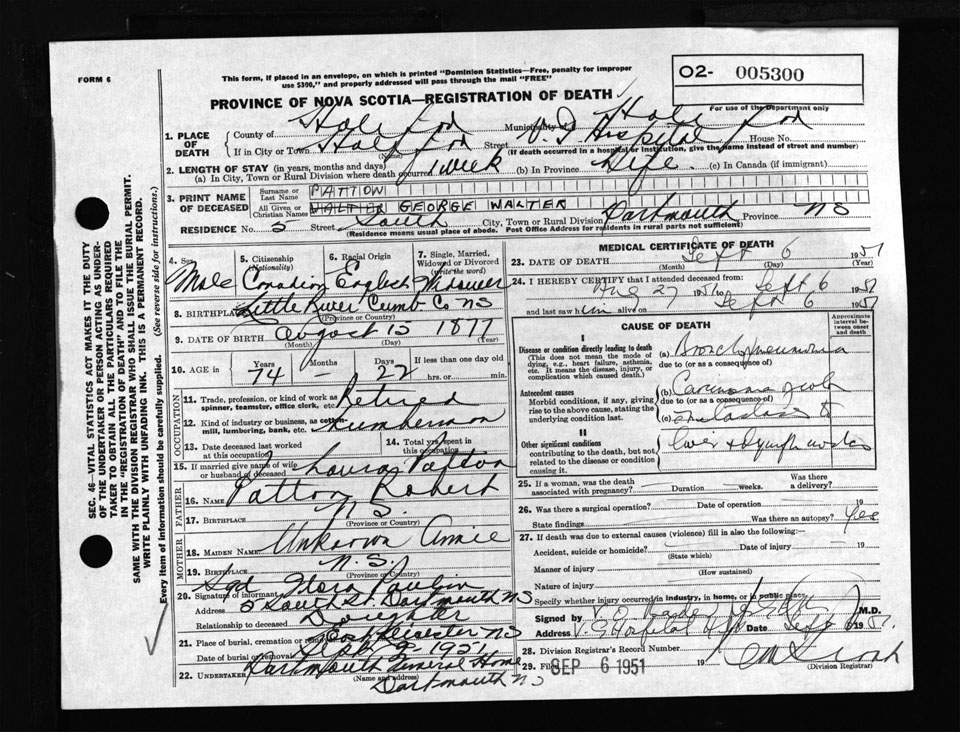 FORM 6
This form, if placed in an envelope, on which is printed "Dominion Statistics—Free, penalty for improper
use $300," and properly addressed will pass through the mail "FREE"
O2- 005300
For use of the Department only
PROVINCE OF NOVA SCOTIA—REGISTRATION OF DEATH
1. PLACE OF DEATH
County of Halifax Municipality Halifax
If in City or Town Halifax (Name) Street V. G. Hospital House No.
(If death occurred in a hospital or institution, give the name instead of street and number)
2. LENGTH OF STAY (in years, months and days)
(a) In City, Town or Rural Division where death occurred 1 week (b) In Province Life (c) In Canada (if immigrant)
3. PRINT NAME OF DECEASED
Surname or Last Name PATTON
All Given or Christian Names WALTER GEORGE WALTER
RESIDENCE No. 5 Street South City, Town or Rural Division Dartmouth Province NS
(Residence means usual place of abode. Post Office Address for residents in rural parts not sufficient)
4. Sex Male
5. Citizenship (Nationality) Canadian
6. Racial Origin English
7. Single, Married, Widowed or Divorced (write the word) Widower
8. BIRTHPLACE Little River Cumb Co NS
(Province or Country)
9. DATE OF BIRTH August 15 1877
(Month) (Day) (Year)
10. AGE in Years 74 Months - Days 22 If less than one day old hrs. or min.
OCCUPATION
11. Trade, profession, or kind of work as spinner, teamster, office clerk, etc. Retired
12. Kind of industry or business, as cotton-mill, lumbering, bank, etc. Lumberman
13. Date deceased last worked at this occupation
14. Total yrs. spent in this occupation
15. If married give name of wife or husband of deceased Laura Patton
FATHER
16. NAME Patton Robert
17. BIRTHPLACE N.S.
(Province or Country)
MOTHER
18. MAIDEN NAME Unknown Annie
19. BIRTHPLACE N.S.
(Province or Country)
20. Signature of informant Sgd Flora Paulin
Address 5 South St. Dartmouth NS
Relationship to deceased Daughter
21. Place of burial, cremation or removal East Leicester NS
Date of burial or removal Sept 9 1951
22. UNDERTAKER Dartmouth Funeral Home
(Name and address)
Dartmouth NS
MEDICAL CERTIFICATE OF DEATH
23. DATE OF DEATH Sept 6 1951
(Month) (Day) (Year)
24. I HEREBY CERTIFY that I attended deceased from:
Aug 27 1951 to Sept 6 1951
and last saw him alive on Sept 6 1951
CAUSE OF DEATH
Approximate interval between onset and death
I
Disease or condition directly leading to death
(This does not mean the mode of dying, e.g., heart failure, asthenia, etc. It means the disease, injury, or complication which caused death.)
(a) Bronchopneumonia
due to (or as a consequence of)
Antecedent causes
Morbid conditions, if any, giving rise to the above cause, stating the underlying condition last.
(b) Carcinoma
due to (or as a consequence of)
(c) metastases to
II
Other significant conditions
contributing to the death, but not related to the disease or condition causing it.
liver & lymph nodes
25. If a woman, was the death associated with pregnancy? Duration weeks. Was there a delivery?
26. Was there a surgical operation? Date of operation 19
State findings Was there an autopsy? Yes
27. If death was due to external causes (violence) fill in also the following:
Accident, suicide or homicide? Date of injury 19
(State which)
Manner of injury
(How sustained)
Nature of injury
Specify whether injury occurred in industry, in home, or in public place
Signed by M.D.
Address V. G. Hospital Hfx Date Sept 6 1951.
28. Division Registrar's Record Number
29. Filed SEP 6 1951 19
(Division Registrar)
SEC. 46—VITAL STATISTICS ACT MAKES IT THE DUTY
OF THE UNDERTAKER OR PERSON ACTING AS UNDER-
TAKER TO OBTAIN ALL THE PARTICULARS REQUIRED
IN THE "REGISTRATION OF DEATH" AND TO FILE THE
SAME WITH THE DIVISION REGISTRAR WHO SHALL ISSUE THE BURIAL PERMIT.
WRITE PLAINLY WITH UNFADING INK. THIS IS A PERMANENT RECORD.
Every item of information should be carefully supplied. (See reverse side for instructions.)